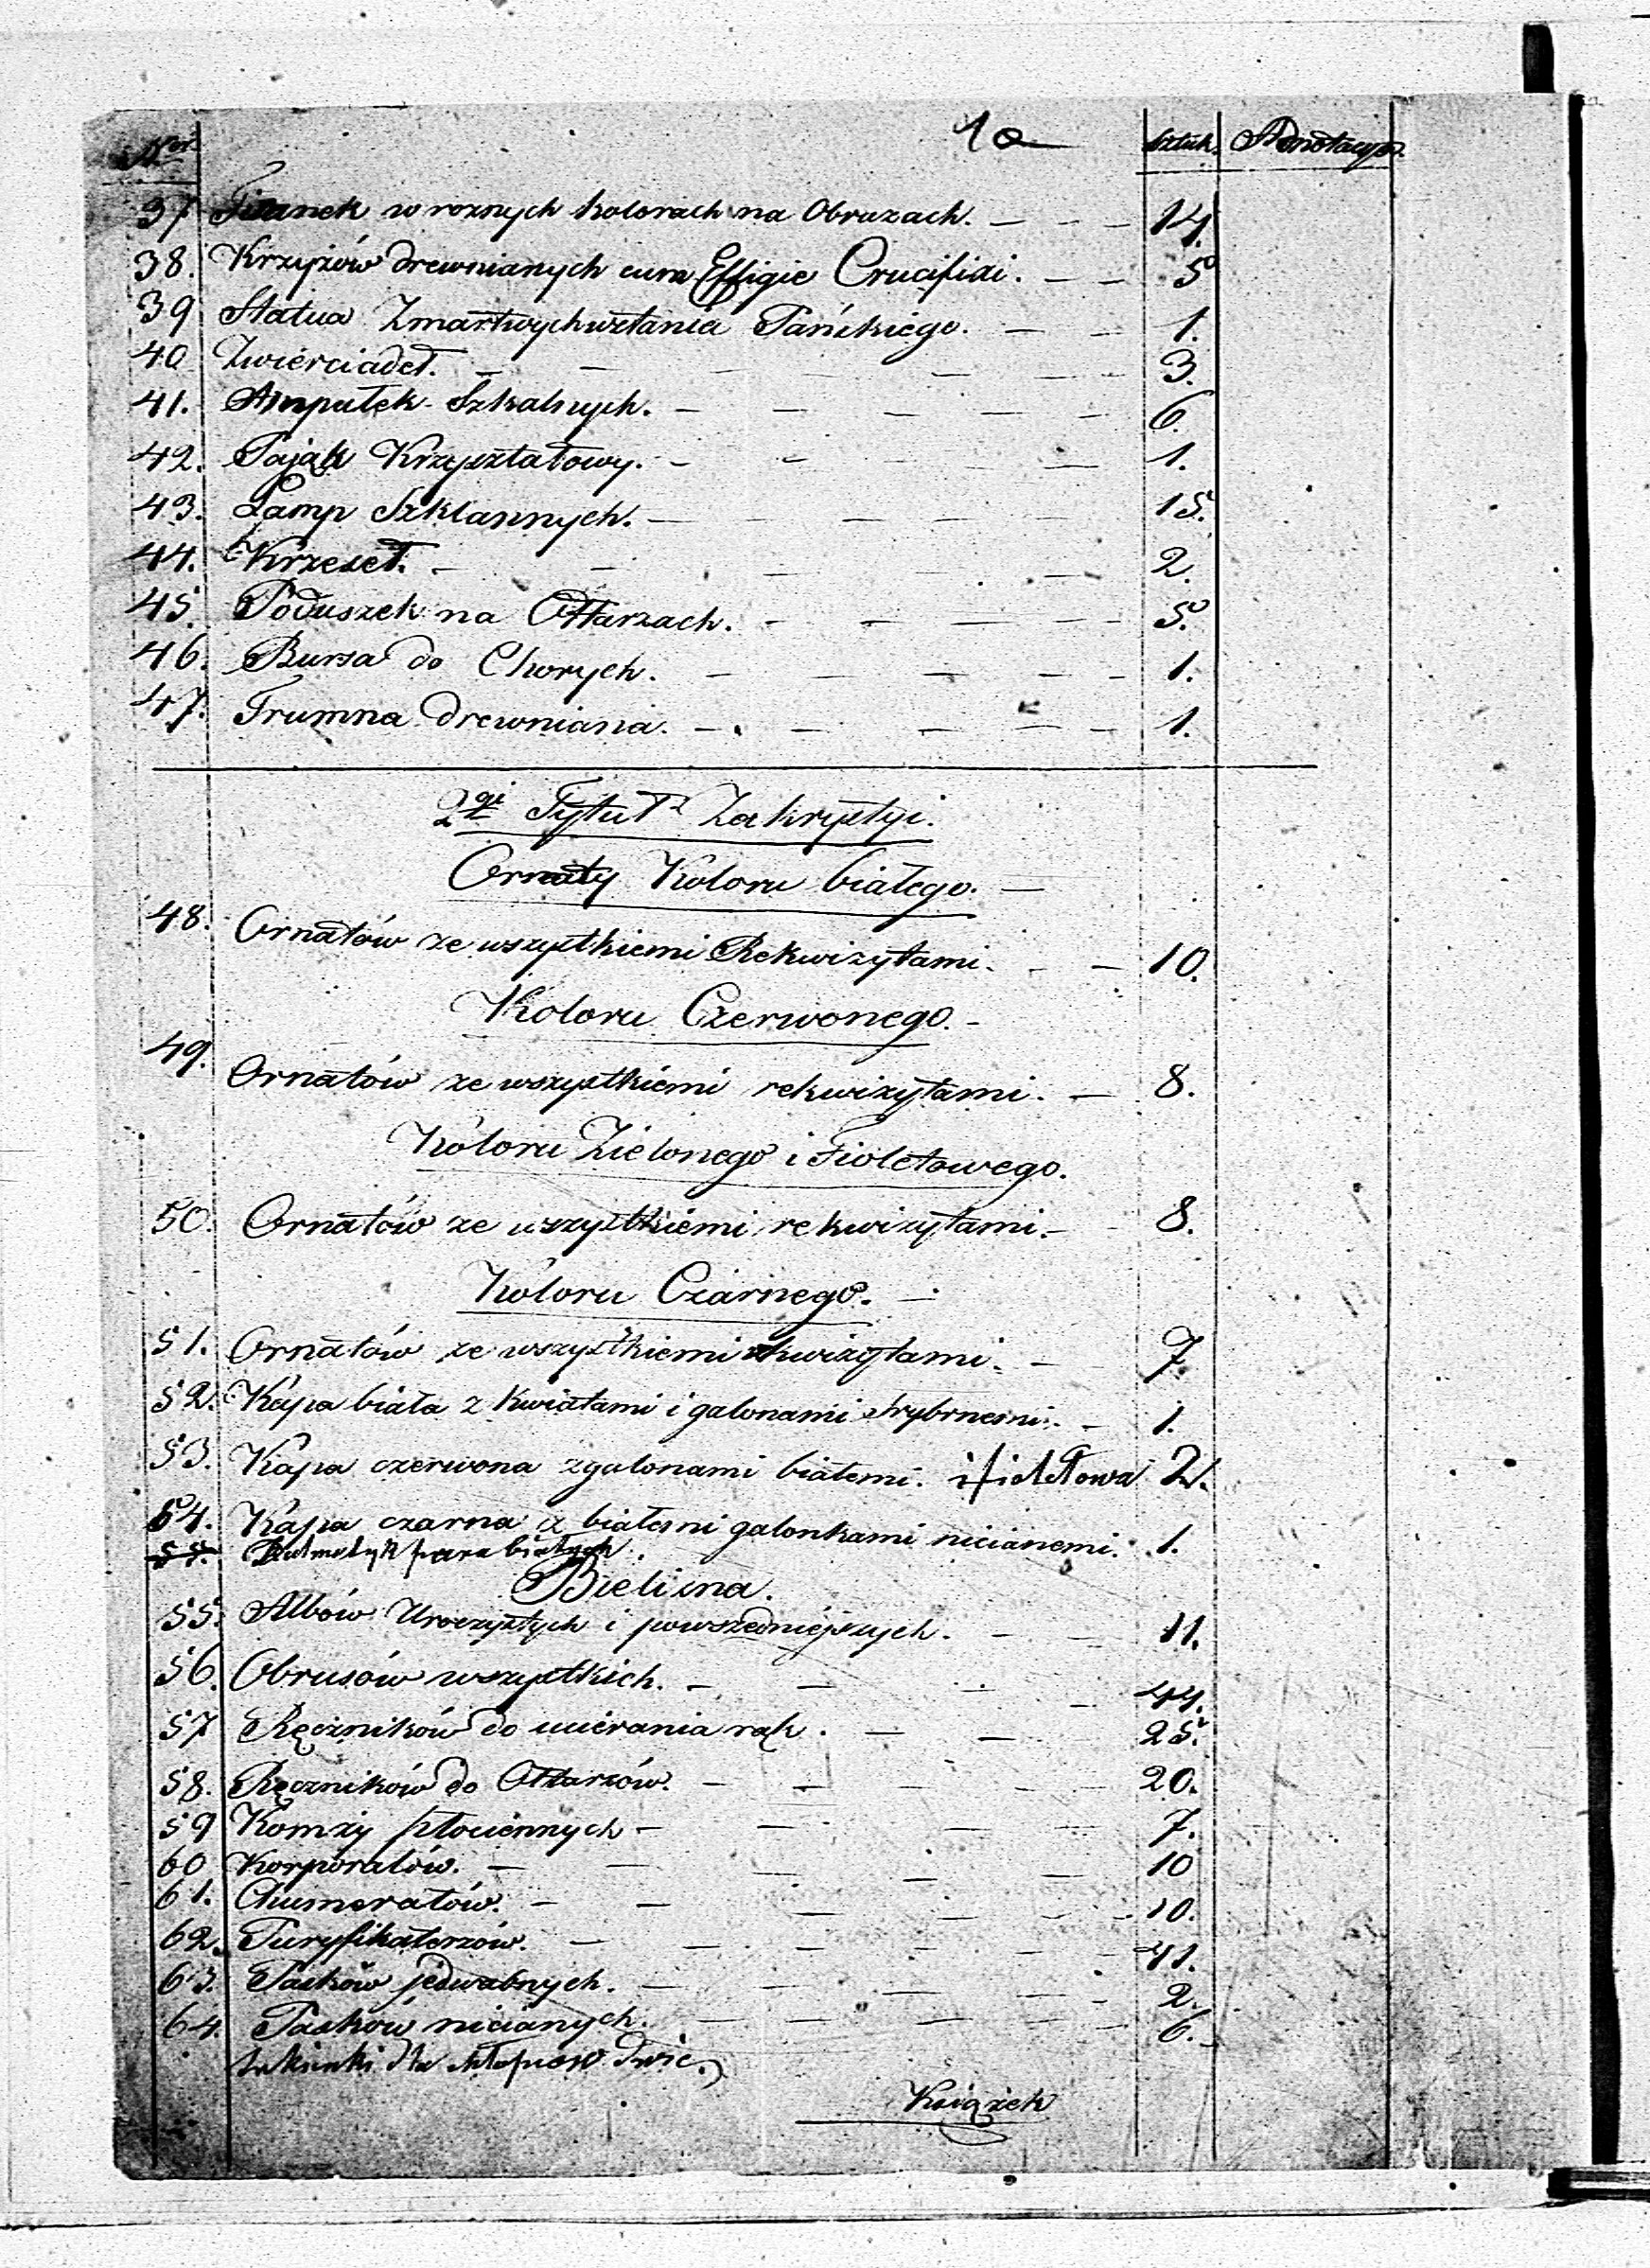 Ner. 1a Sztuk. Adnotacya.
37 Firanek w roznych kolorach na Obrazach. — — — 14.
38. Krzyżów drewnianych cum Effigie Crucifixi. — — 5
39 Statua Zmartwychwstania Pańskiego. — — 1.
40 Zwierciadeł. — — — — — — 3.
41. Ampułek Szkalnych. — — — — — 6.
42. Pająk Krzyształowy. — — — — — 1.
43. Lamp Szklannych. — — — — — 15.
44. Krzeseł. — — — — — 2.
45. Poduszek na Ołtarzach. — — — — — 5.
46. Bursa do Chorych. — — — — — 1.
47. Trumna drewniana. — — — — — 1.
2gi Tytuł Zakrystyi.
Ornaty Koloru białego. —
48. Ornatów ze wszystkiemi Rekwizytami. — — 10.
Koloru Czerwonego. —
49. Ornatów ze wszystkiemi rekwizytami. — 8.
Koloru Zielonego i Fioletowego.
50. Ornatów ze wszystkiemi rekwizytami. — 8.
Koloru Czarnego. —
51. Ornatów ze wszystkiemi rekwizytami. — 7.
52. Kapa biała z kwiatami i galonami srybrnemi. — 1.
53. Kapa czerwona z galonami białemi. i fioletowa 2.
54. Kapa czarna z białemi galonkami nicianemi. 1.
55. Dalmatyk para białych.
Bielizna.
55. Albów Uroczystych i powszedniejszych. — — 11.
56. Obrusów wszystkich. — — — — 44.
57 Ręczników do ucierania rąk. — — 25.
58. Ręczników do Ołtarzów. — — — — 20.
59 Komży płociennych — — — — 7.
60 Korporałów. — — — — — 10
61. Chumerałów. — — — — — — 10.
62. Puryfikaterzów. — — — — — — 41.
63. Pasków jedwabnych. — — — — — 2.
64. Pasków nicianych. — — — — — — 6.
Sukienki dla chłopców
Książek